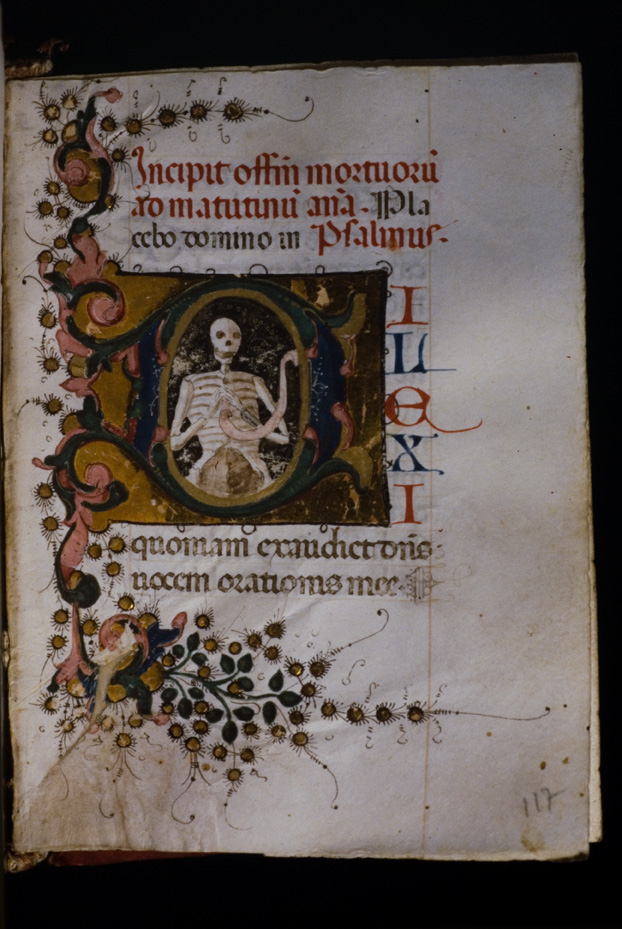 Incipit offm̄ mortuorū
ad matutinū an̄a. Pla
cebo domino in Psalmus.
DI
L
E
X
I
quoniam exaudiet dn̄s
uocem orationis mee.
117